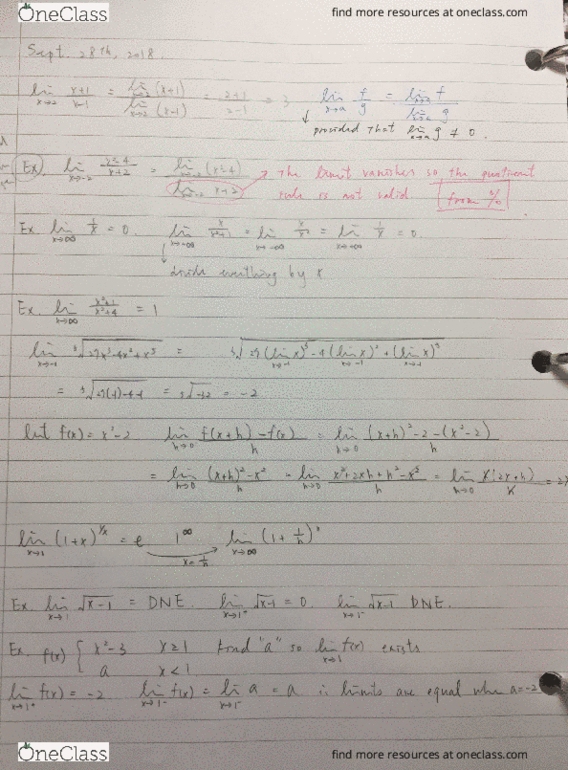 OneClass
find more resources at oneclass.com
Sept. 28th, 2018.
lim x→2 x+1/x-1 = lim x→2 (x+1) / lim x→2 (x-1) = 2+1/2-1 = 3 lim x→a f/g = lim x→a f / lim x→a g
↓ provided that lim x→a g ≠ 0.
Ex. lim x→-2 x²-4/x+2 = lim x→-2 (x²-4) / lim x→-2 x+2 → The limit vanishes so the quotient
rule is not valid. from %
Ex. lim x→∞ 1/x = 0. = lim x→-∞ 1/x = 0.
↓ divide everything by x
Ex. lim x→∞ x²+1/x²+4 = 1
lim x→-1 =
= = -2
let f(x) = x²-2 lim h→0 f(x+h)-f(x)/h = lim h→0 (x+h)²-2-(x²-2)/h
= lim h→0 (x+h)²-x²/h = lim h→0 x²+2xh+h²-x²/h = lim h→0 = 2x
(1+x)^1/x = e 1^∞ lim x→∞
Ex. lim x→1 √x-1 = DNE. lim x→1⁺ √x-1 = 0. lim x→1⁻ √x-1 DNE.
Ex. f(x) { x²-3 x≥1 find "a" so lim x→1 f(x) exists
a x<1
lim x→1⁺ f(x) = -2 lim x→1⁻ f(x) = lim x→1⁻ a = a limits are equal when a=-2
OneClass
find more resources at oneclass.com